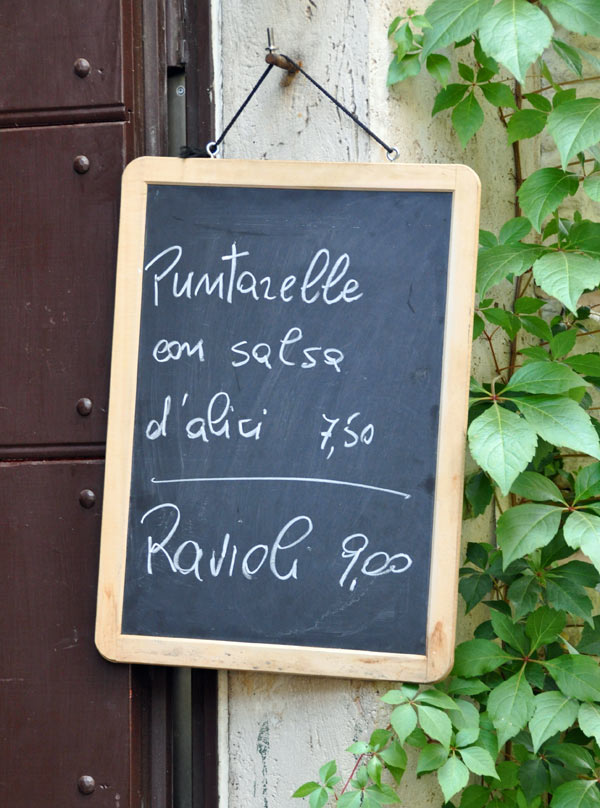 Puntarelle
con salsa
d'alici 7,50
Ravioli 9,00